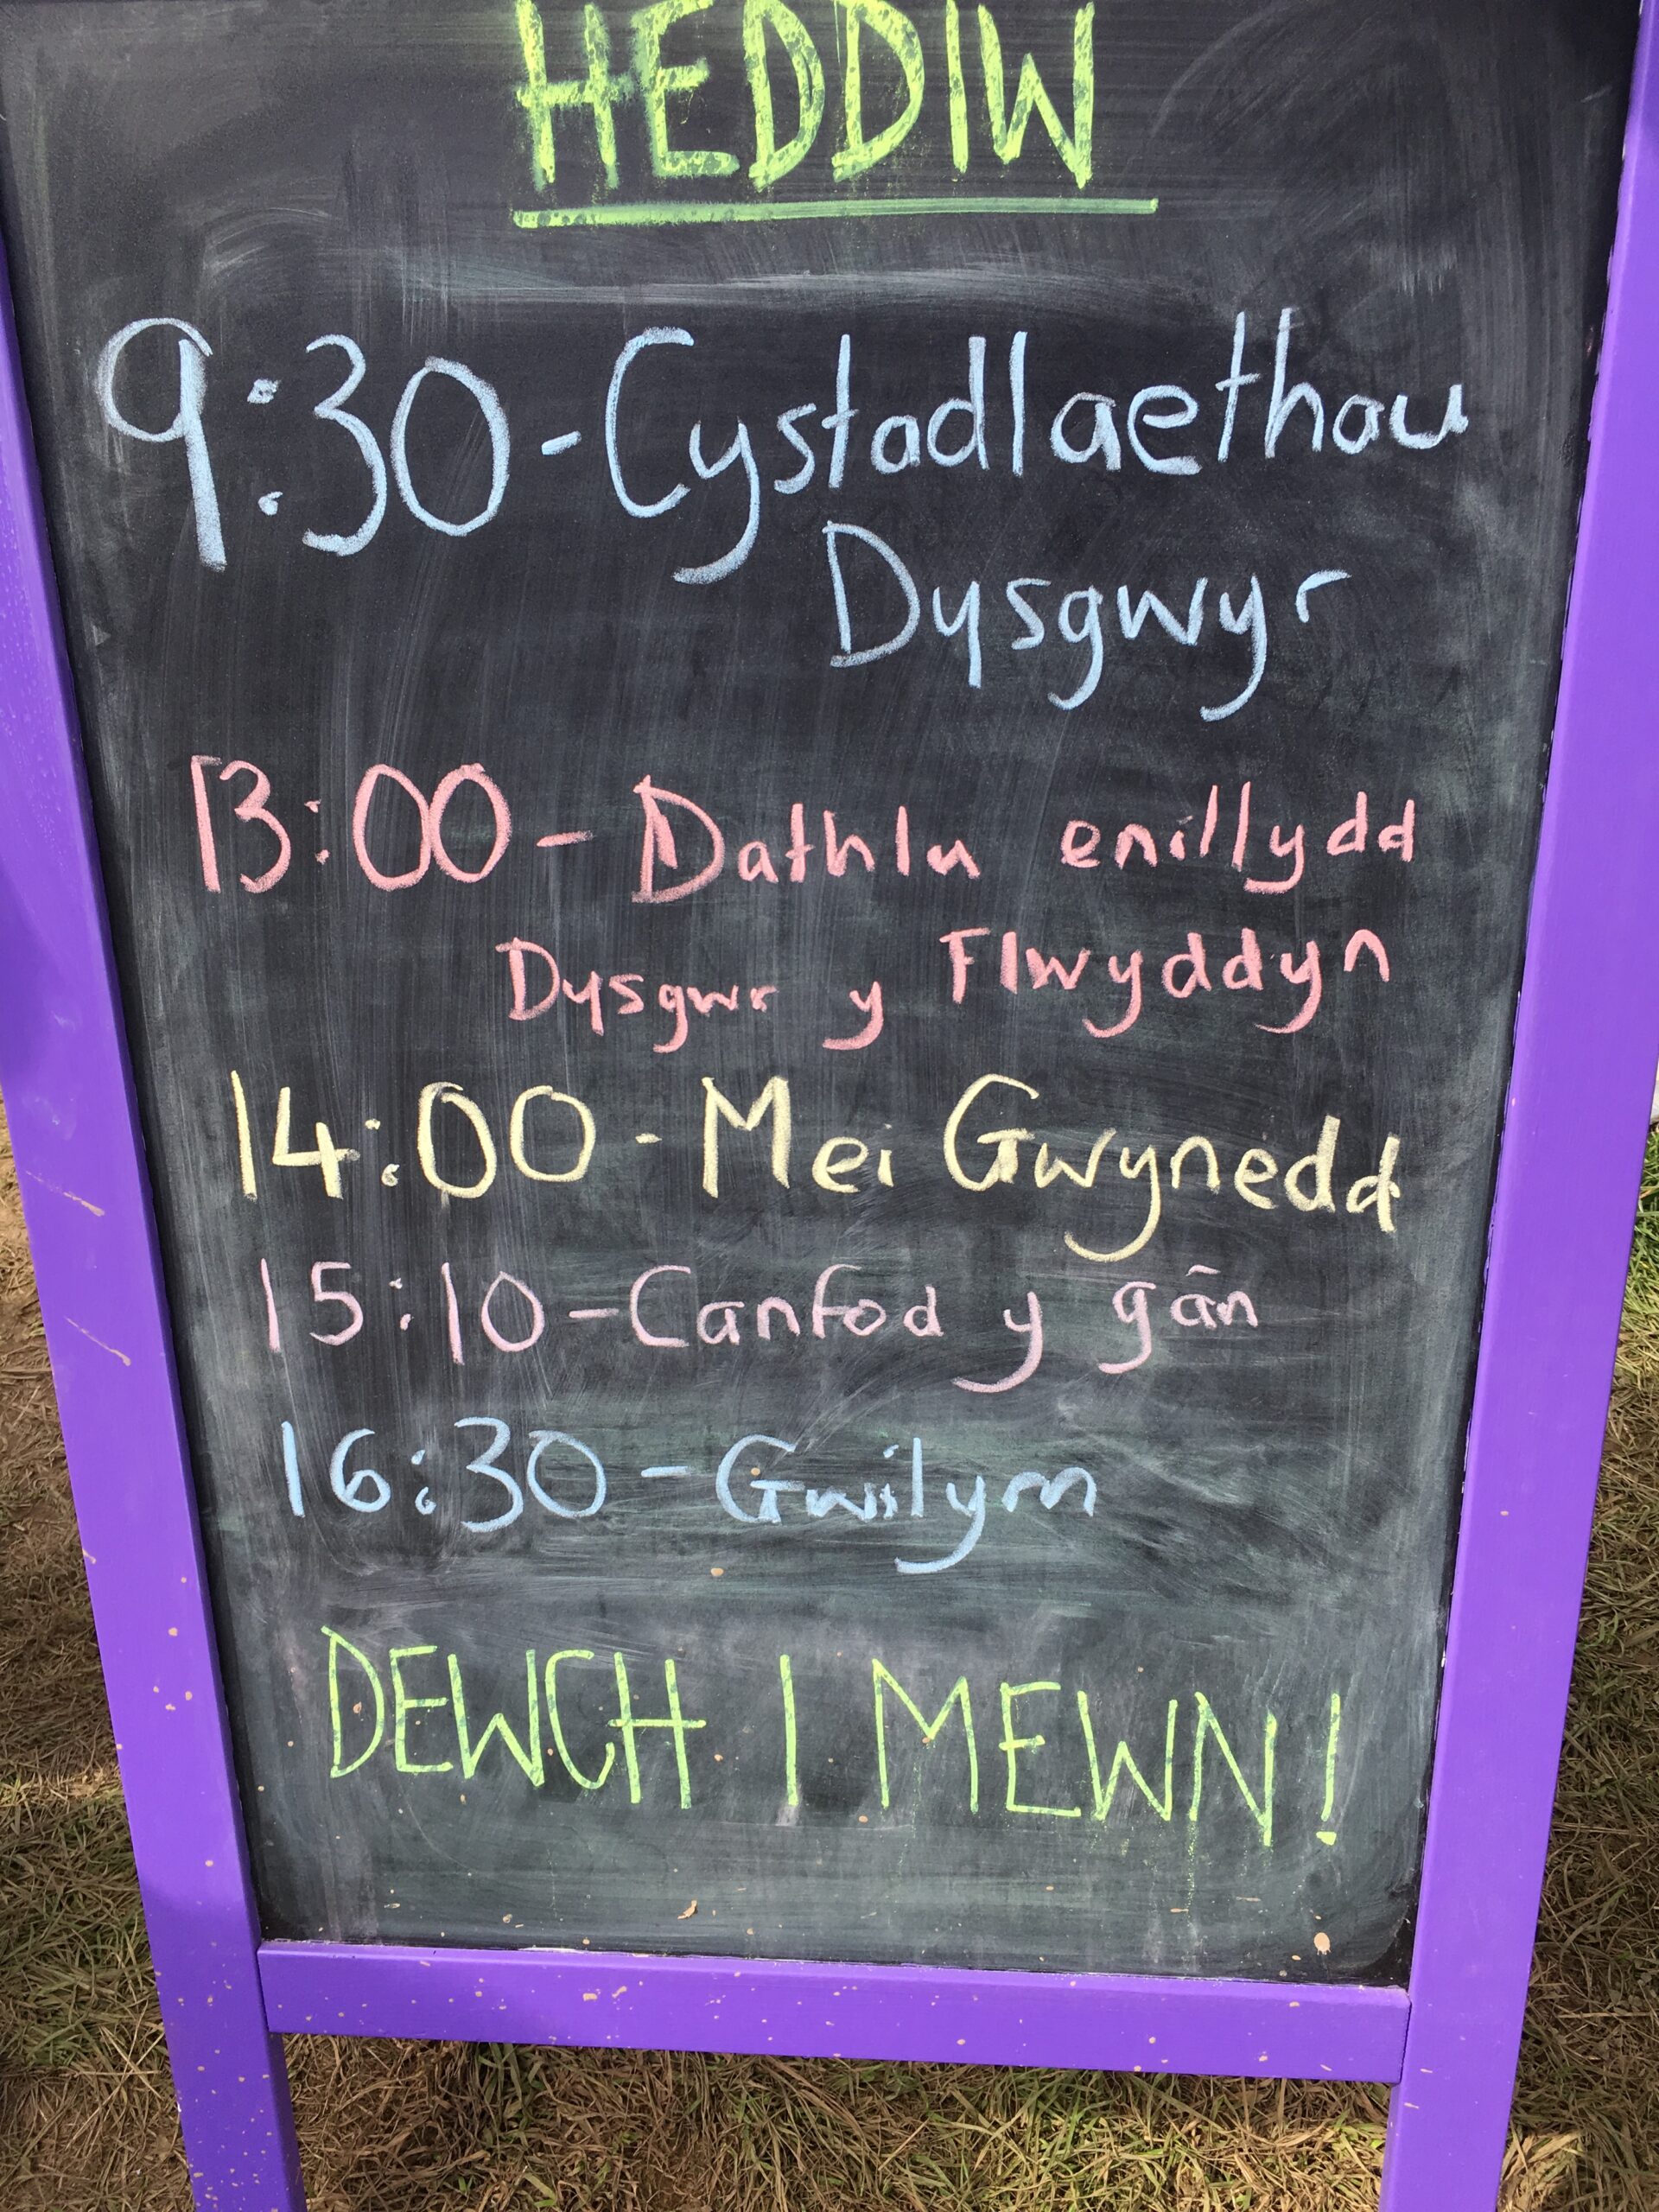 HEDDIW
9:30 - Cystadlaethau
Dysgwyr
13:00 - Dathlu enillydd
Dysgwr y Flwyddyn
14:00 - Mei Gwynedd
15:10 - Canfod y gân
16:30 - Gwilym
DEWCH I MEWN!